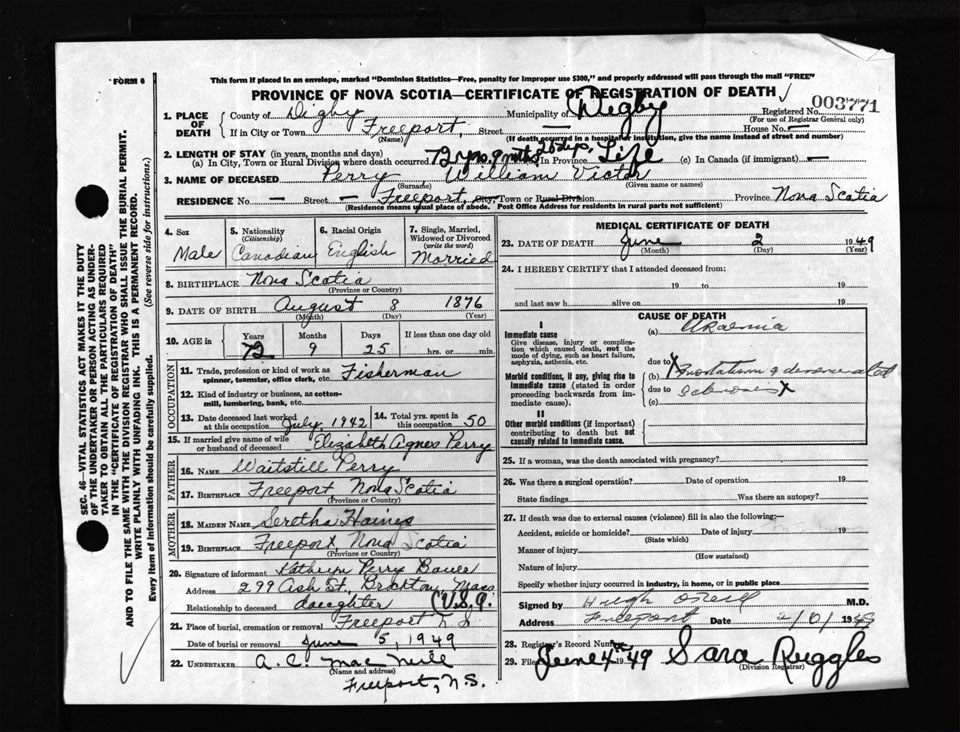 FORM 6
This form if placed in an envelope, marked "Dominion Statistics—Free, penalty for improper use $300," and properly addressed will pass through the mail "FREE"
PROVINCE OF NOVA SCOTIA—CERTIFICATE OF REGISTRATION OF DEATH
003771
1. PLACE OF DEATH
County of Digby Municipality of Digby Registered No.
(For use of Registrar General only)
If in City or Town Freeport Street — House No. —
(Name) (If death occurred in a hospital or institution, give the name instead of street and number)
2. LENGTH OF STAY (in years, months and days)
(a) In City, Town or Rural Division where death occurred 72 yrs. 9 mths. 25 dys. In Province Life (c) In Canada (if immigrant) —
3. NAME OF DECEASED Perry William Victor
(Surname) (Given name or names)
RESIDENCE No. — Street — Freeport, City, Town or Rural Division Province Nova Scotia
(Residence means usual place of abode. Post Office Address for residents in rural parts not sufficient)
4. Sex Male
5. Nationality (Citizenship) Canadian
6. Racial Origin English
7. Single, Married, Widowed or Divorced (write the word) Married
8. BIRTHPLACE Nova Scotia
(Province or Country)
9. DATE OF BIRTH August 8 1876
(Month) (Day) (Year)
10. AGE in Years 72 Months 9 Days 25 If less than one day old hrs. or min.
OCCUPATION
11. Trade, profession or kind of work as spinner, teamster, office clerk, etc. Fisherman
12. Kind of industry or business, as cotton-mill, lumbering, bank, etc.
13. Date deceased last worked at this occupation July, 1942
14. Total yrs. spent in this occupation 50
15. If married give name of wife or husband of deceased Elizabeth Agnes Perry
FATHER
16. NAME Waitstill Perry
17. BIRTHPLACE Freeport, Nova Scotia
(Province or Country)
MOTHER
18. MAIDEN NAME Seretha Haines
19. BIRTHPLACE Freeport Nova Scotia
(Province or Country)
20. Signature of informant Kathryn Perry
Address 299 Ash St., Brockton, Mass.
Relationship to deceased daughter (U.S.A.
21. Place of burial, cremation or removal Freeport N.S.
Date of burial or removal June 5, 1949
22. UNDERTAKER A. C. MacNeill
(Name and address)
Freeport, N.S.
MEDICAL CERTIFICATE OF DEATH
23. DATE OF DEATH June 2 1949
(Month) (Day) (Year)
24. I HEREBY CERTIFY that I attended deceased from:
19 to 19
and last saw h alive on 19
CAUSE OF DEATH
I
Immediate cause
Give disease, injury or complication which caused death, not the mode of dying, such as heart failure, asphyxia, asthenia, etc.
(a) Uraemia
due to
Morbid conditions, if any, giving rise to immediate cause (stated in order proceeding backwards from immediate cause).
(b)
due to
(c)
II
Other morbid conditions (if important) contributing to death but not causally related to immediate cause.
25. If a woman, was the death associated with pregnancy?
26. Was there a surgical operation? Date of operation 19
State findings Was there an autopsy?
27. If death was due to external causes (violence) fill in also the following:—
Accident, suicide or homicide? Date of injury 19
(State which)
Manner of injury
(How sustained)
Nature of injury
Specify whether injury occurred in industry, in home, or in public place
Signed by Hugh O'Neill M.D.
Address Freeport Date 1949
28. Register's Record Number
29. Filed June 4th 1949 Sara Ruggles
(Division Registrar)
SEC. 46—VITAL STATISTICS ACT MAKES IT THE DUTY OF THE UNDERTAKER OR PERSON ACTING AS UNDERTAKER TO OBTAIN ALL THE PARTICULARS REQUIRED IN THE "CERTIFICATE OF REGISTRATION OF DEATH"
AND TO FILE THE SAME WITH THE DIVISION REGISTRAR WHO SHALL ISSUE THE BURIAL PERMIT.
WRITE PLAINLY WITH UNFADING INK. THIS IS A PERMANENT RECORD.
Every item of information should be carefully supplied. (See reverse side for instructions.)